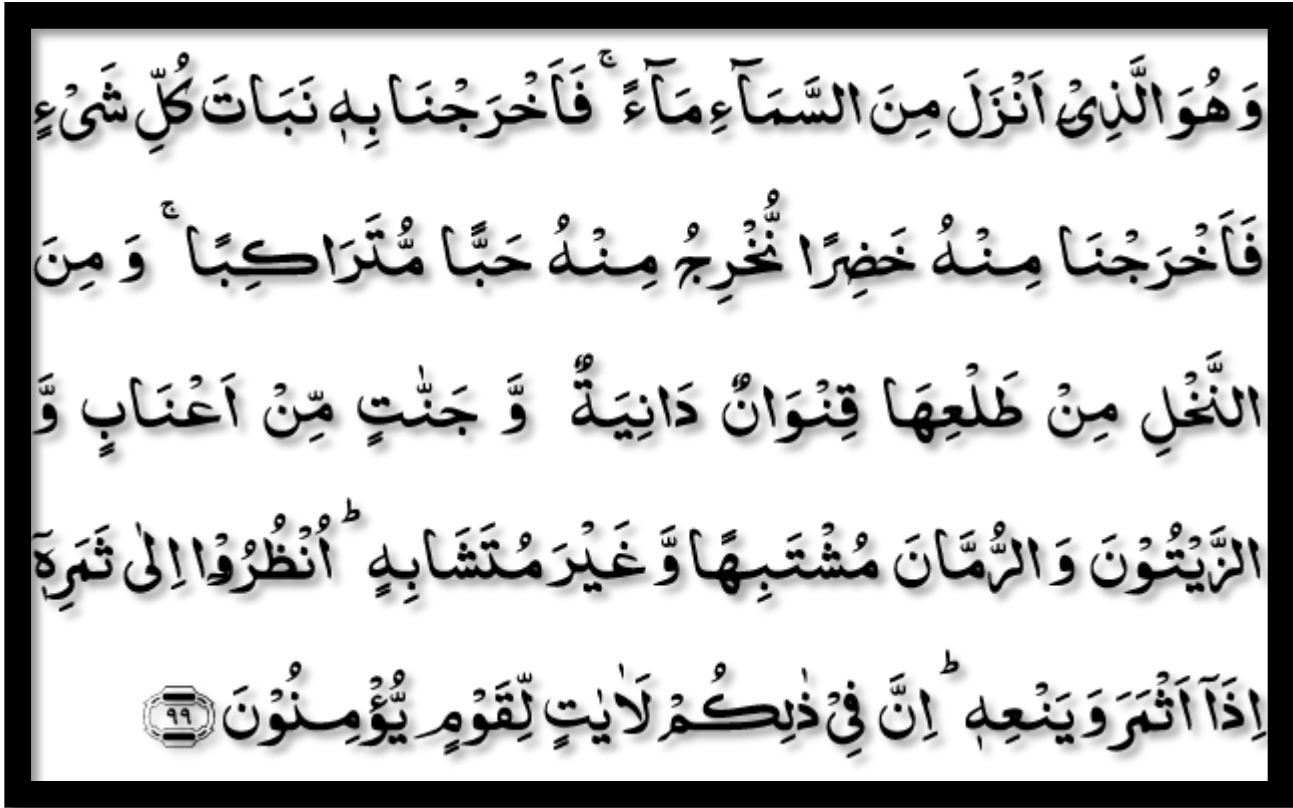 وَ هُوَ الَّذِیْۤ اَنْزَلَ مِنَ السَّمَآءِ مَآءً ۚ فَاَخْرَجْنَا بِهٖ نَبَاتَ كُلِّ شَیْءٍ
فَاَخْرَجْنَا مِنْهُ خَضِرًا نُّخْرِجُ مِنْهُ حَبًّا مُّتَرَاكِبًا ۚ وَ مِنَ
النَّخْلِ مِنْ طَلْعِهَا قِنْوَانٌ دَانِیَةٌ وَّ جَنّٰتٍ مِّنْ اَعْنَابٍ وَّ
الزَّیْتُوْنَ وَ الرُّمَّانَ مُشْتَبِهًا وَّ غَیْرَ مُتَشَابِهٍ ؕ اُنْظُرُوْۤا اِلٰی ثَمَرِهٖۤ
اِذَاۤ اَثْمَرَ وَ یَنْعِهٖ ؕ اِنَّ فِیْ ذٰلِكُمْ لَاٰیٰتٍ لِّقَوْمٍ یُّؤْمِنُوْنَ ﴿۹۹﴾